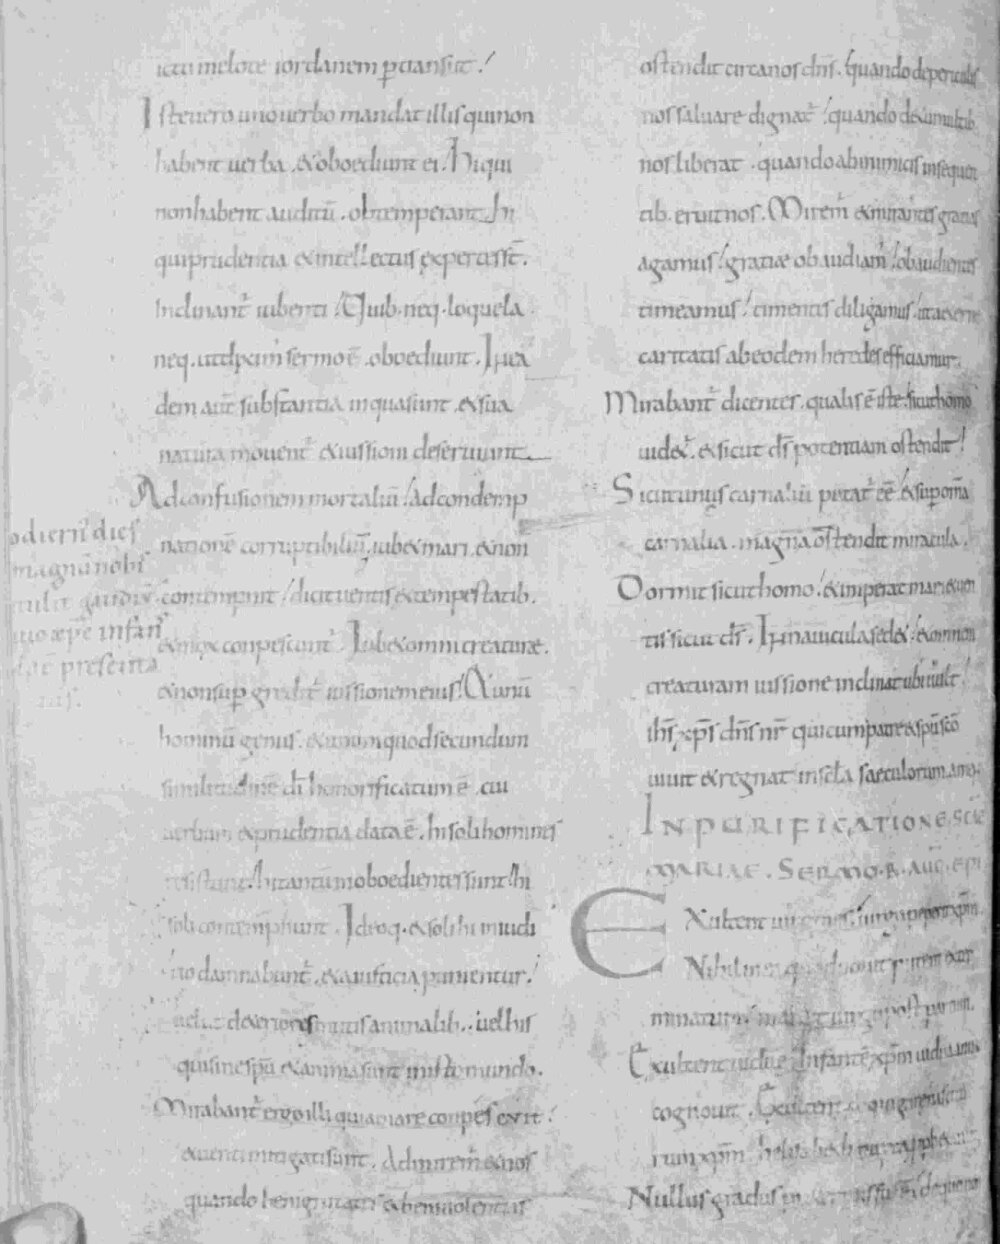 ictu melote iordanem ꝑtransiit.
Iste uero uno uerbo mandat illis qui non
habent uerba. & oboediunt ei. Hi qui
non habent auditū. obtemperant. hi
qui prudentia & intellectus expertes s̄t.
Inclinant͛ iubenti. Quib. neq. loquela
neq. sermo ē. oboediunt. In ea
dem aut̄ substantia in qua sunt. & sua
natura mouent͛ & iussioni deseruiunt
Ad confusionem mortaliū. Ad condemp
nationē corruptibiliū. iub& mari. & non
contempnit. dicit uentis & tempestatib.
& mox conpescunt͛. Iub& omni creaturae.
& non suꝑgredit͛ iussionem eius. At unū
hominū genus. & unum quod secundum
similitudinē dī honorificatum ē. cui
uerbum & prudentia data ē. hi soli homines
resistunt. hi tantum inoboedientes sunt. hi
soli contempnunt. Ideoq. & soli hi in iudi
tio damnabunt͛. & a iusticia punientur.
deteriores mutis animalib. uel his
qui sine spū & anima sunt in isto mundo.
Mirabant͛ ergo illi quia mare conpescuit.
& uenti mitigati sunt. Admirem͛ & nos
quando benignitatis & beniuolentias
odiern͛ dies
magnū nobis
tulit gaudiū
infan
presenta
ostendit circa nos dn̄s. quando de periculis
nos saluare dignat͛. quando de tumultib.
nos liberat. quando ab inimicis insequen
tib. eruit nos. Mirem͛ & mirantes gratias
agamus. gratiae obaudiam͛. obaudientes
timeamus. timentes diligamus. ut aeterne
caritatis ab eodem heredes efficiamur.
Mirabant͛ dicentes. qualis ē iste. sicut homo
uidet͛. & sicut ds̄ potentiam ostendit.
Sicut unus carnaliū putat͛ eē. & supom̄a
carnalia. magna ostendit miracula.
Dormit sicut homo. & imperat mari & uen
tis sicut ds̄. In nauicula sed&. & omnem
creaturam iussione inclinat ubi uult.
ihs̄ xp̄s dn̄s nr̄ qui cum patre & spū sc̄o
uiuit & regnat in secl̄a saeculorum. am̄.
IN PURIFICATIONE SC̄E
MARIAE. SERMO. B. AUG. EPI
Exultent uirgines. uirgo peperit xp̄m.
Nihil in
post partum.
Exultent uidue. Infantē xp̄m uidua
cognouit. Exultent
rum xp̄m
Nullus gradus